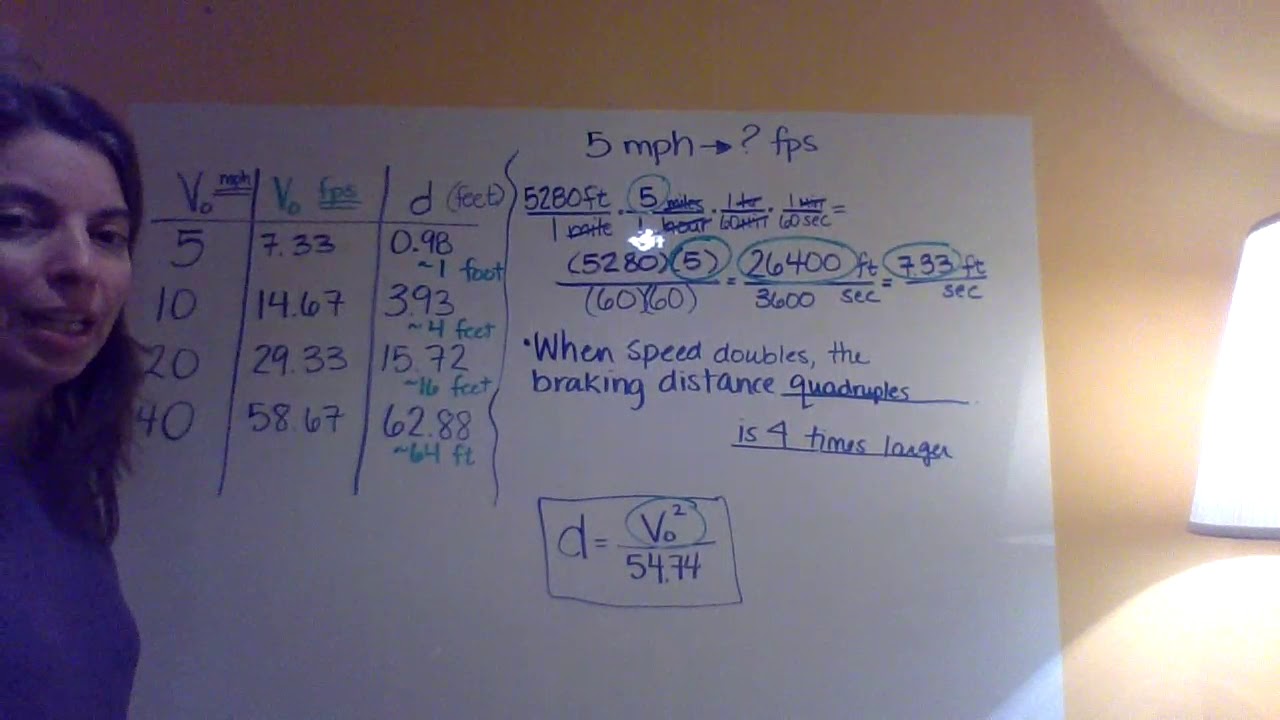 V₀ mph V₀ fps d (feet)
5 7.33 0.98
~1 foot
10 14.67 3.93
~4 feet
20 29.33 15.72
~16 feet
40 58.67 62.88
~64 ft
5 mph → ? fps
5280ft/1 mile · 5 miles/1 hour · 1 hr/60 min · 1 min/60 sec =
(5280)(5)/(60)(60) = 26400 ft/3600 sec = 7.33 ft/sec
• When speed doubles, the
braking distance quadruples.
is 4 times larger
d = V₀²/54.74